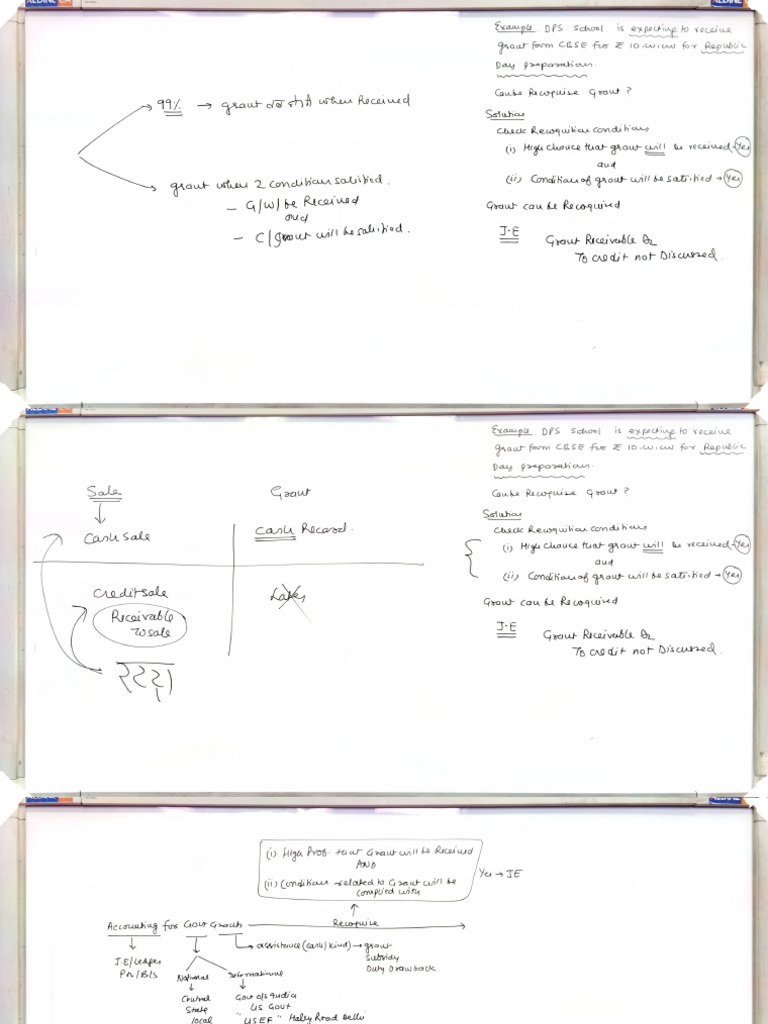 Example. DPS School is expecting to receive
grant form CBSE for ₹ 10.W.CW for Republic
Day preparations.
Can be Recognise Grant ?
99% → grant when Received
Solution
Check Recognition conditions
(i) High chance that grant will be received → Yes
and
(ii) Condition of grant will be satisfied → Yes
grant when 2 conditions satisfied.
- G/W/be Received
and
- C/grant will be satisfied.
Grant can be Recognised
J.E
Grant Receivable Dr
To credit not Discussed.
Example. DPS School is expecting to receive
grant form CBSE for ₹ 10.W.CW for Republic
Day preparations.
Can be Recognise Grant ?
Sale
Grant
Cash Sale
Cash Record.
Credit sale
Later
Receivable
To sale
Solution
Check Recognition conditions
(i) High chance that grant will be received → Yes
and
(ii) Condition of grant will be satisfied → Yes
Grant can be Recognised
J.E
Grant Receivable Dr
To credit not Discussed.
(i) High Prob. that Grant will be Received
AND
(ii) Conditions related to Grant will be
complied with
Yes → JE
Accounting for Govt Grants
Recognise
J.E/Ledger
P&L/B/S
assistance (cash/kind) → grant
Subsidy
Duty Drawback
National
International
Central
State
local
Govt o/s India
US Govt
"USEF" Hailey Road Delhi